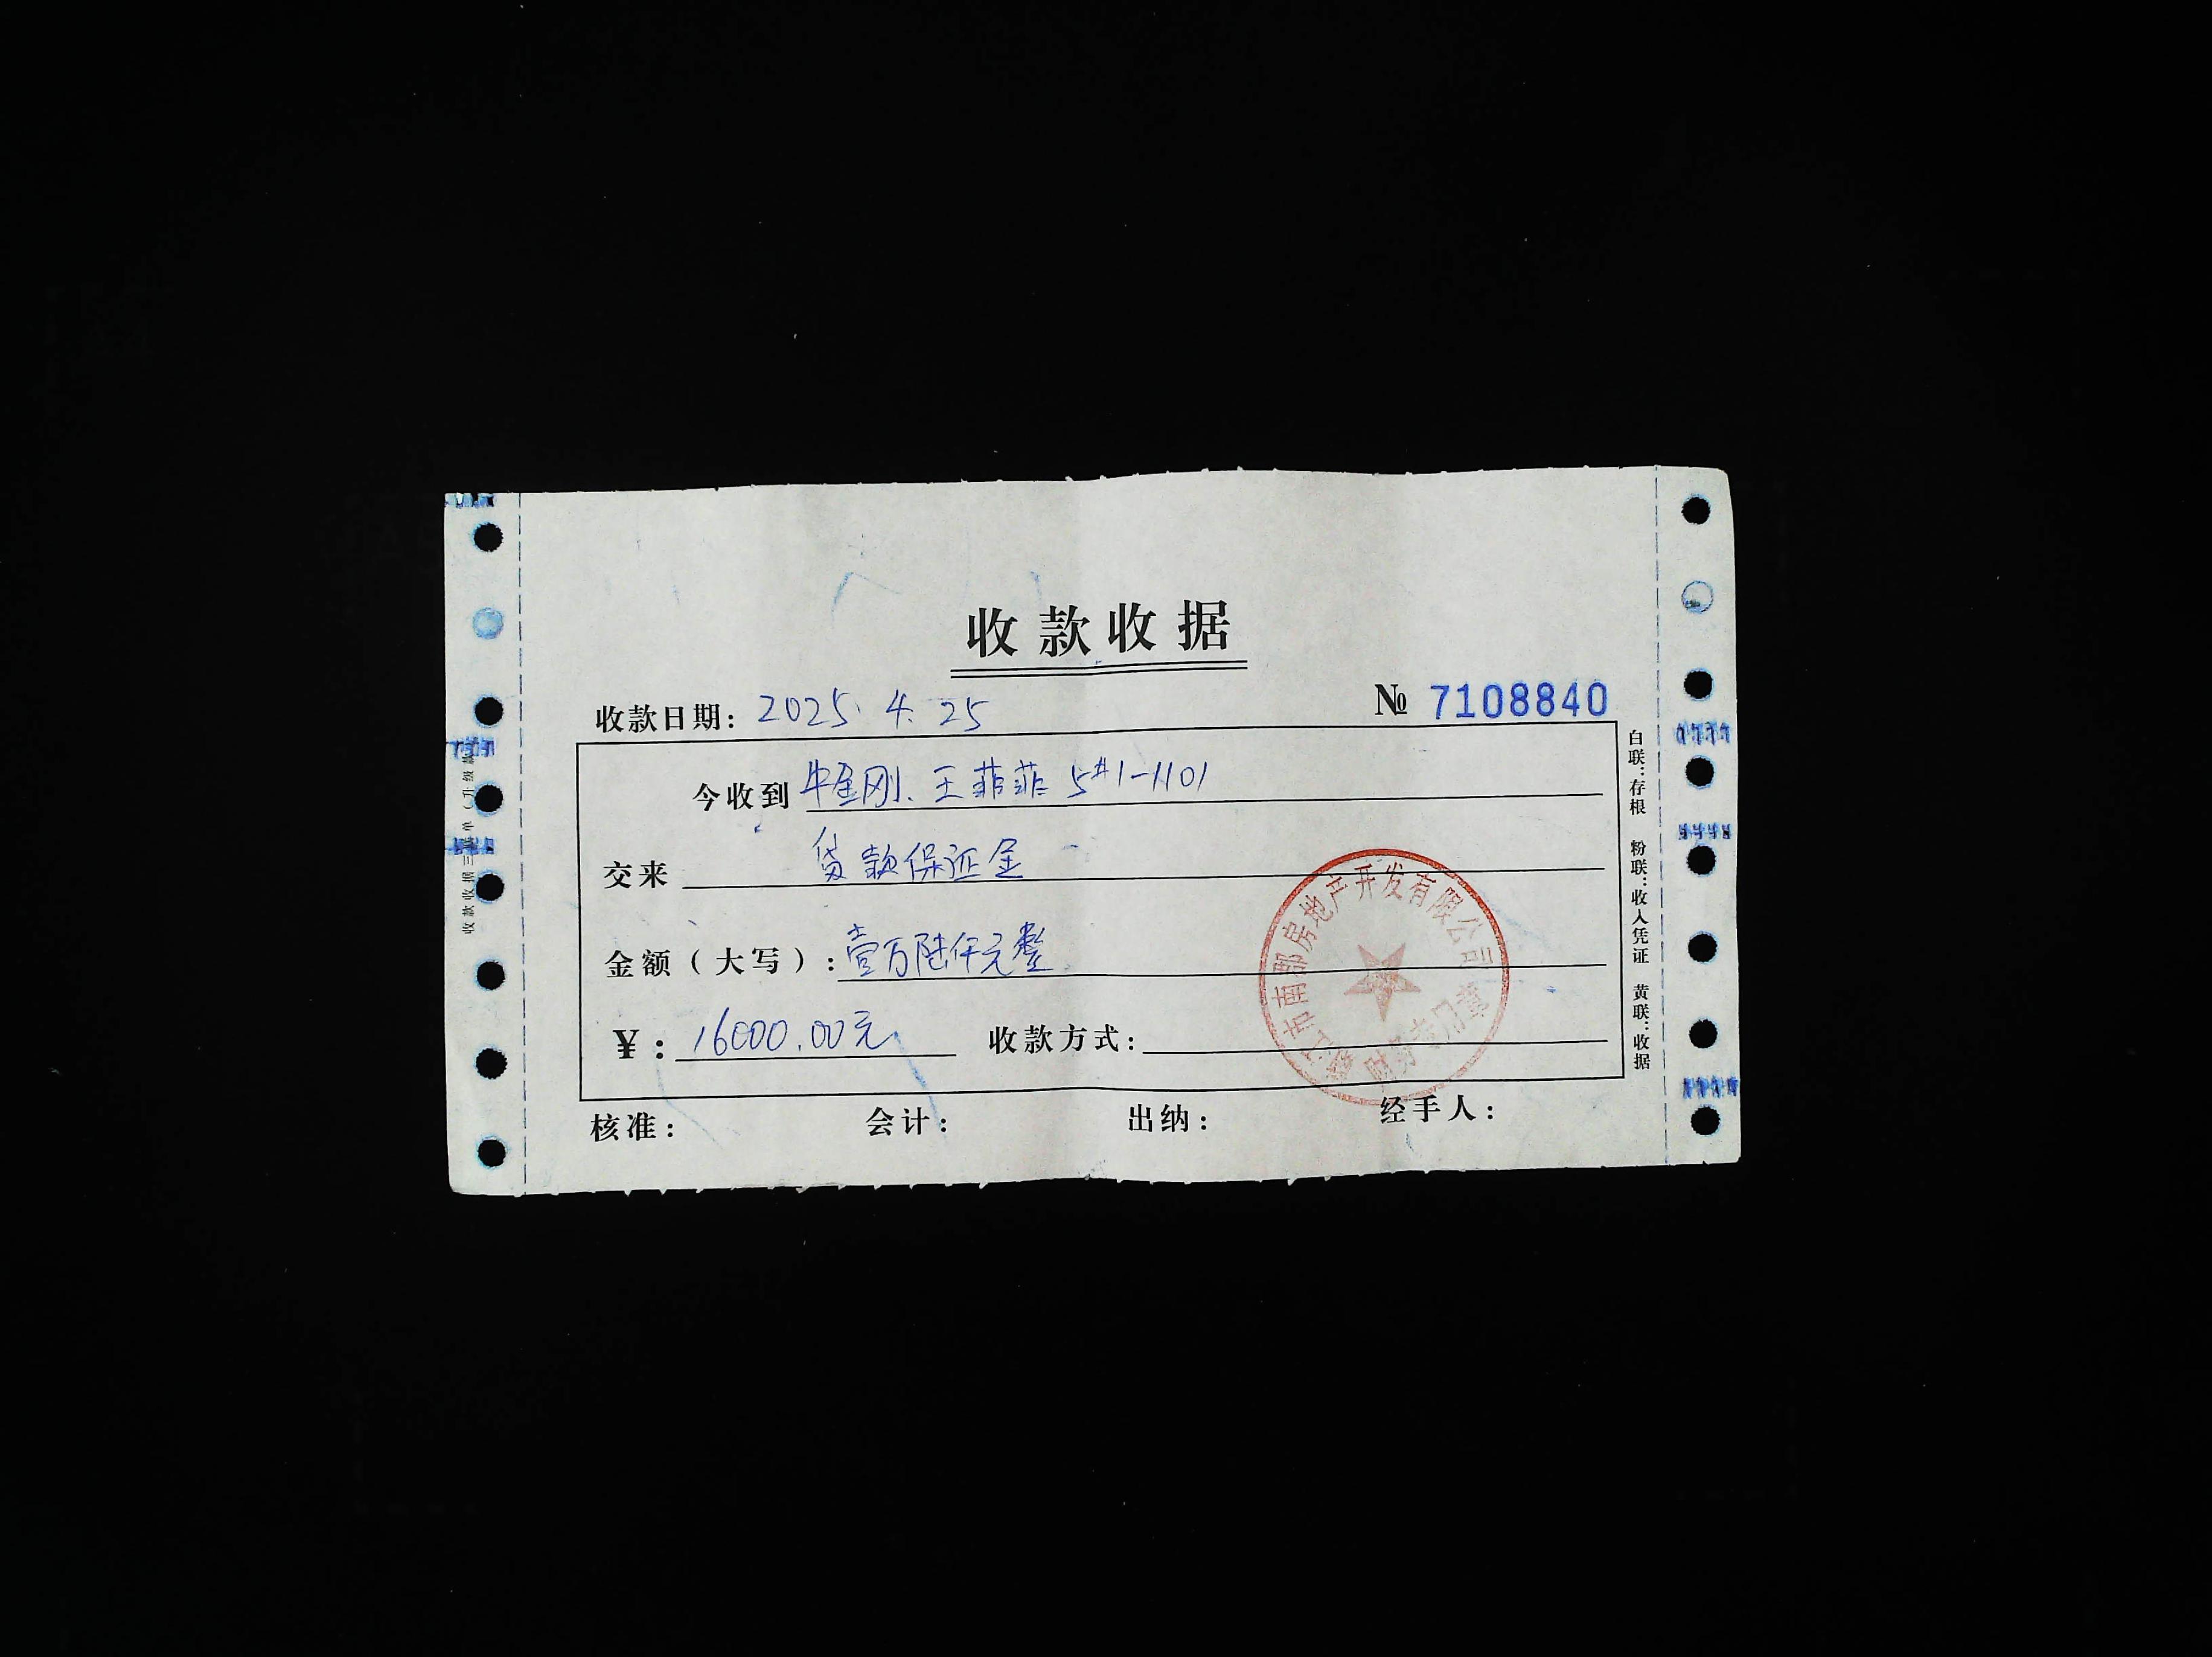 收款收据
收款日期: 2025. 4. 25
№ 7108840
今收到 牛金刚、王菲菲 5#1-1101
交来 贷款保证金
金额（大写）: 壹万陆仟元整
¥: 16000.00元 收款方式:
核准: 会计: 出纳: 经手人:
白联:存根 粉联:收入凭证 黄联:收据
市南郡房地产开发有限公司
财务专用章
收款收据三联单（升级款